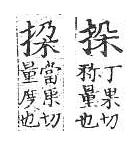 挆
丁果切
称量也
挅
當果切
量度也